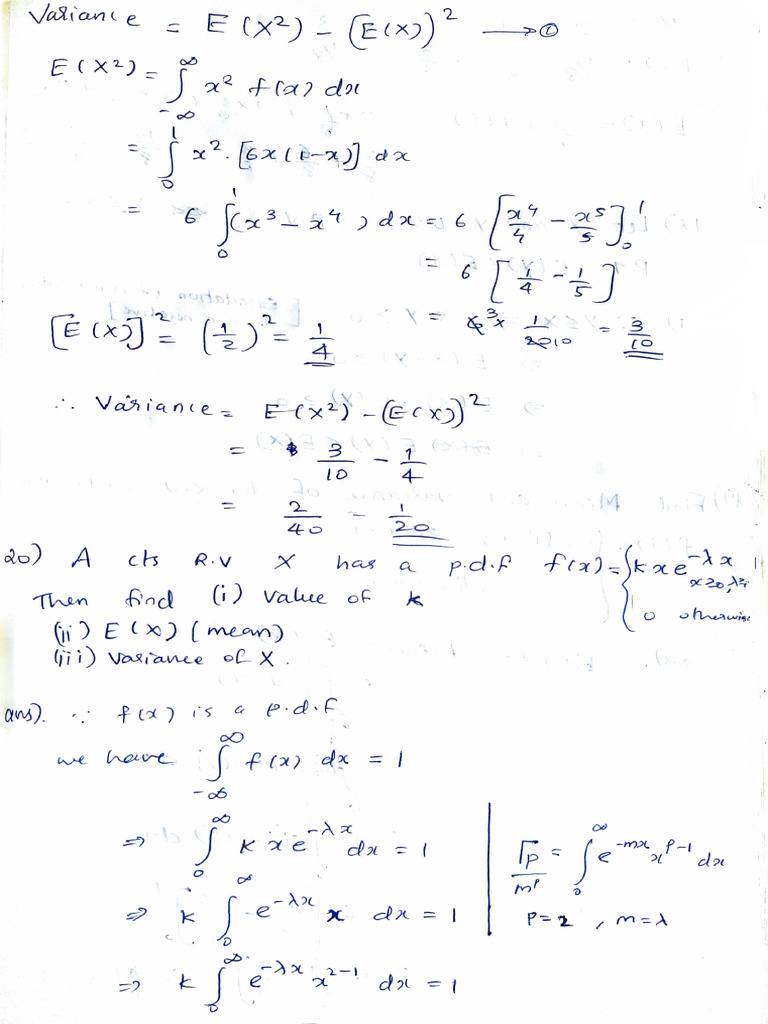 Variance = E(X²) − (E(X))² ⟶ ①
E(X²) = ∫_{-∞}^{∞} x² f(x) dx
= ∫_0^1 x². [6x(1-x)] dx
= 6 ∫_0^1 (x³ − x⁴) dx = 6 [x⁴/4 − x⁵/5]_0^1
= 6 [1/4 − 1/5]
[E(X)]² = (1/2)² = 1/4 = 6 3 × 1/20 10 = 3/10
∴ Variance = E(X²) − (E(X))²
= 3/10 − 1/4
= 2/40 = 1/20
20) A cts R.V X has a p.d.f f(x) = { k x e^{-λx}
x≥0, λ>
0 otherwise
Then find (i) value of k
(ii) E(X) (mean)
(iii) Variance of X.
ans). ∵ f(x) is a p.d.f
we have ∫_{-∞}^{∞} f(x) dx = 1
⇒ ∫_0^∞ k x e^{-λx} dx = 1
⇒ k ∫_0^∞ e^{-λx} x dx = 1
⇒ k ∫_0^∞ e^{-λx} x^{2-1} dx = 1
Γp/m^p = ∫_0^∞ e^{-mx} x^{p-1} dx
P=2, m=λ